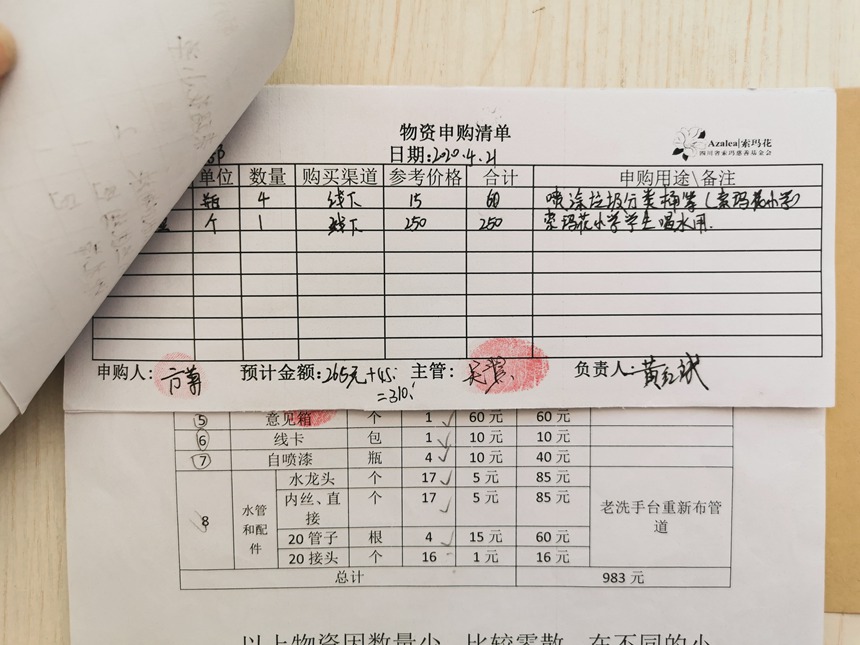 物资申购清单
Azalea|索玛花
四川省索玛慈善基金会
日期:2020.4.21
单位 数量 购买渠道 参考价格 合计 申购用途\备注
瓶 4 线下 15 60 喷涂垃圾分类桶等(索玛花小学)
个 1 线下 250 250 索玛花小学学生喝水用.
申购人: 预计金额:265元+45. 主管: 负责人: 黄红斌
=310.
5 意见箱 个 1 60元 60元
6 线卡 包 1 10元 10元
7 自喷漆 瓶 4 10元 40元
8 水管和配件 水龙头 个 17 5元 85元 老洗手台重新布管道
内丝、直接 个 17 5元 85元
20管子 根 4 15元 60元
20接头 个 16 1元 16元
总计 983元
以上物资因数量少，比较零散，在不同的小